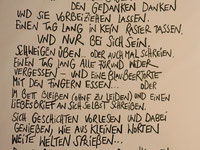 DEN GEDANKEN DANKEN
UND SIE VORBEIZIEHEN LASSEN.
EINEN TAG LANG IN KEIN RASTER PASSEN.
UND NUR BEI SICH SEIN.
SCHWEIGEN ÜBEN. ODER AUCH MAL SCHREIEN.
EINEN TAG LANG ALLE FÜR UND WIDER
VERGESSEN – UND EINE BLAUBEERTORTE
MIT DEN FINGERN ESSEN... ODER
IM BETT BLEIBEN (OHNE ZU LEIDEN) UND EINEN
LIEBESBRIEF AN SICH SELBST SCHREIBEN.
SICH GESCHICHTEN VORLESEN UND DABEI
GENIEßEN, WIE AUS KLEINEN WORTEN
WEITE WELTEN SPRIEßEN...